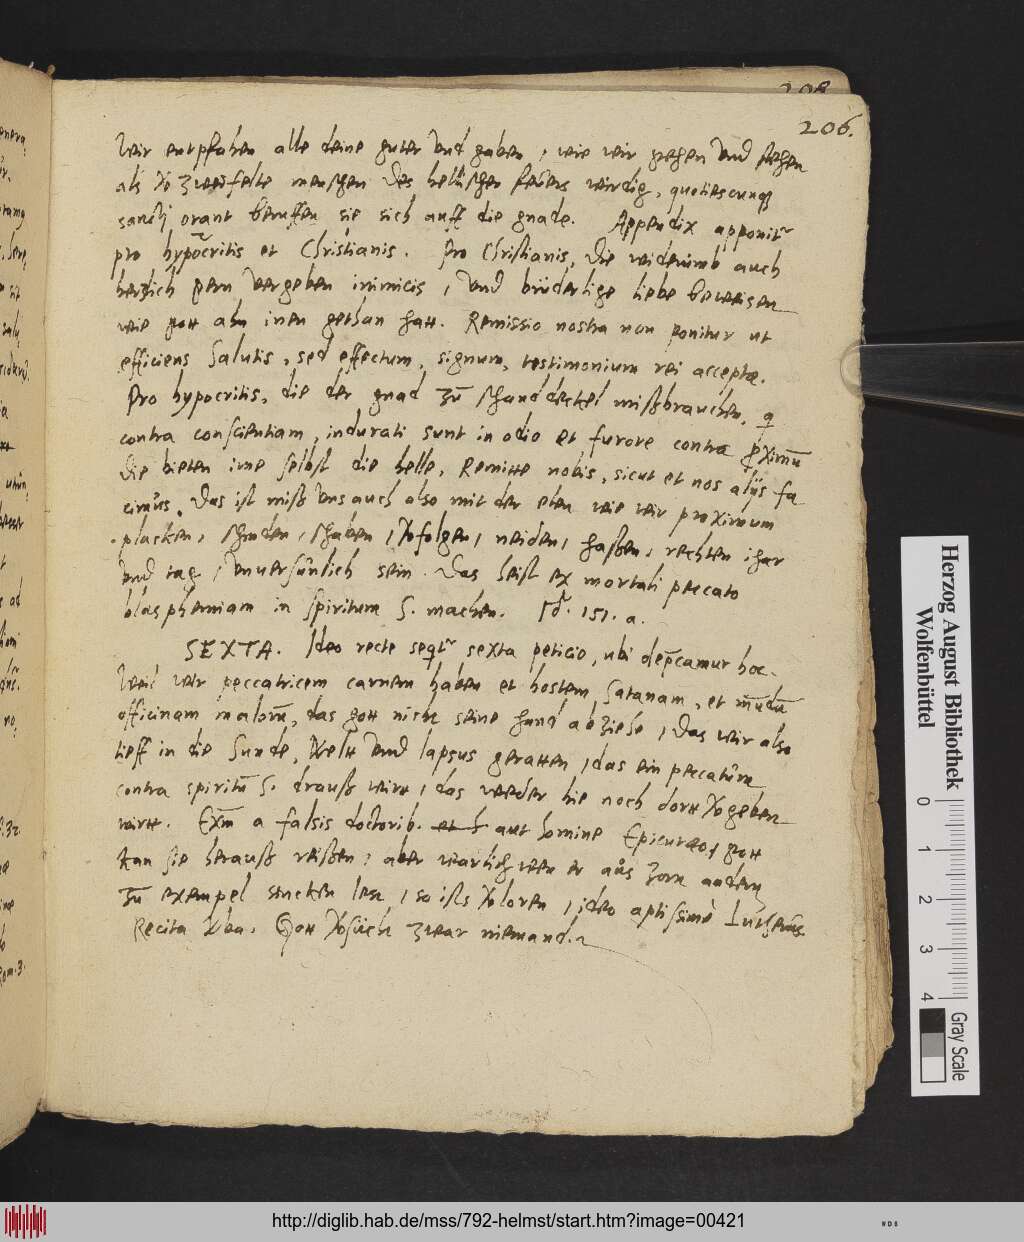 208
206.
Wir entpfahen alle deine guter und gaben, wie wir gehen und stehen
als vozweifelte menschen des hellischen feuers wirdig, quotiescunq
sancti orant beruffen sie sich auff die gnade. Appendix apponitr
pro hypocritis et Christianis. Pro Christianis, die widerumb auch
hertzlich gern vergeben inimicis, und brüderlige liebe beweisen
wie gott ahn inen gethan hatt. Remissio nostra non ponitur ut
efficiens Salutis, sed effectum, signum, testimonium rei acceptæ.
Pro hypocritis, die der gnad zu schanddeckel mißbrauchen. q
contra conscientiam, indurati sunt in odio et furore contra pximu
die bieten ime selbst die helle, Remitte nobis, sicut et nos alijs fa
cimus. Das ist miß uns auch also mit der elen wie wir proximum
placken, schinden, schaben, vofolgen, neiden, haßen, rechten ihar
und tag, unversünlich sein. Das heist ex mortali peccato
blasphemiam in spiritum S. machen. fo. 151. a.
SEXTA. Ideo recte seqtr sexta peticio, ubi depcamur hoc.
Weil wir peccatricem carnem haben et hostem Satanam, et mundu
officinam maloru, das gott nicht seine hand abziehe, das wir also
tieff in die Sunde, Welt und lapsus geratten, das ein peccatum
contra spiritu S. drauß wirt, das weeder hie noch dort vogeben
wirtt. Exm a falsis doctorib. aut homine Epicureo, gott
kan sie herauß reißen, aber warlich wen er aus zorn andern
zu exempel sincken lest, so ists voloren, ideo aptissime Lutherus
Recita vba. Gott vosucht zwar niemand.
Herzog August Bibliothek
Wolfenbüttel
0 1 2 3 4
Gray Scale
http://diglib.hab.de/mss/792-helmst/start.htm?image=00421